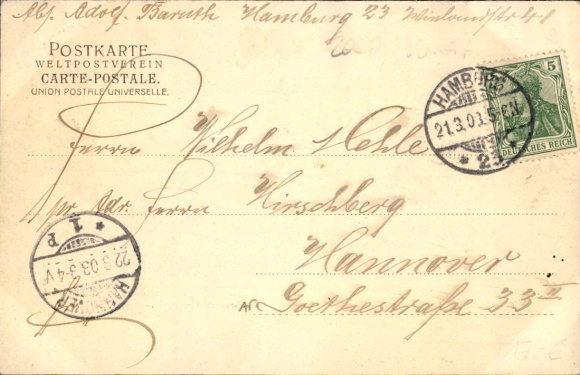 Abs. Adolf Baruth Hamburg 23 Winlandstr 41
POSTKARTE.
WELTPOSTVEREIN
CARTE-POSTALE.
UNION POSTALE UNIVERSELLE.
5
DEUTSCHES REICH
HAMBURG
21.3.03. 5-6 N
* 23
Herrn Wilhelm Mehle
pr. Adr. Herrn Hirschberg
Hannover
Goethestraße 33 II
* 1 P
22.3.03. 3-4 V
HANNOVER